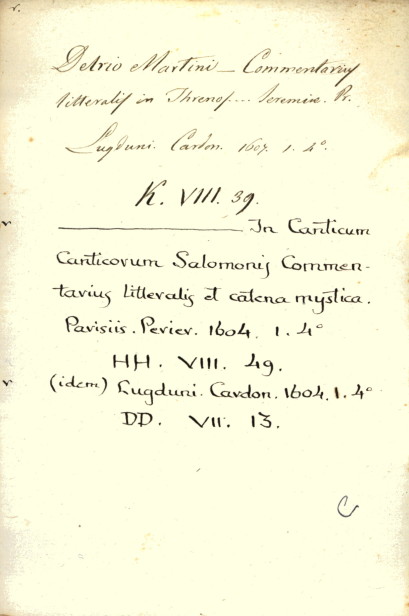 v.
Delrio Martini — Commentarius
litteralis in Threnos... Ieremiæ. Pr.
Lugduni. Cardon. 1607. 1. 4°.
K. VIII. 39.
——— In Canticum
Canticorum Salomonis Commen-
tarius litteralis et catena mystica.
Parisiis. Perier. 1604. 1. 4°
HH. VIII. 49.
v (idem) Lugduni. Cardon. 1604. 1. 4°
DD. VII. 13.
C